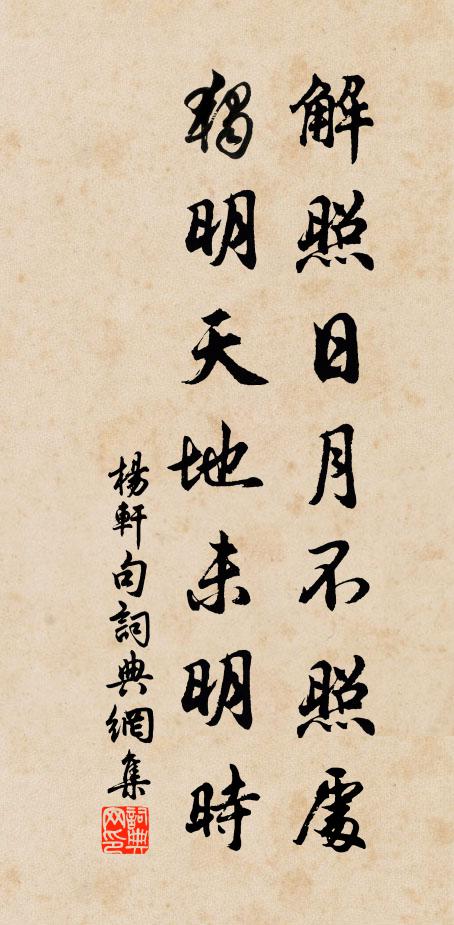 解照日月不照處
獨明天地未明時
楊軒句詞典網集
詞典
网印